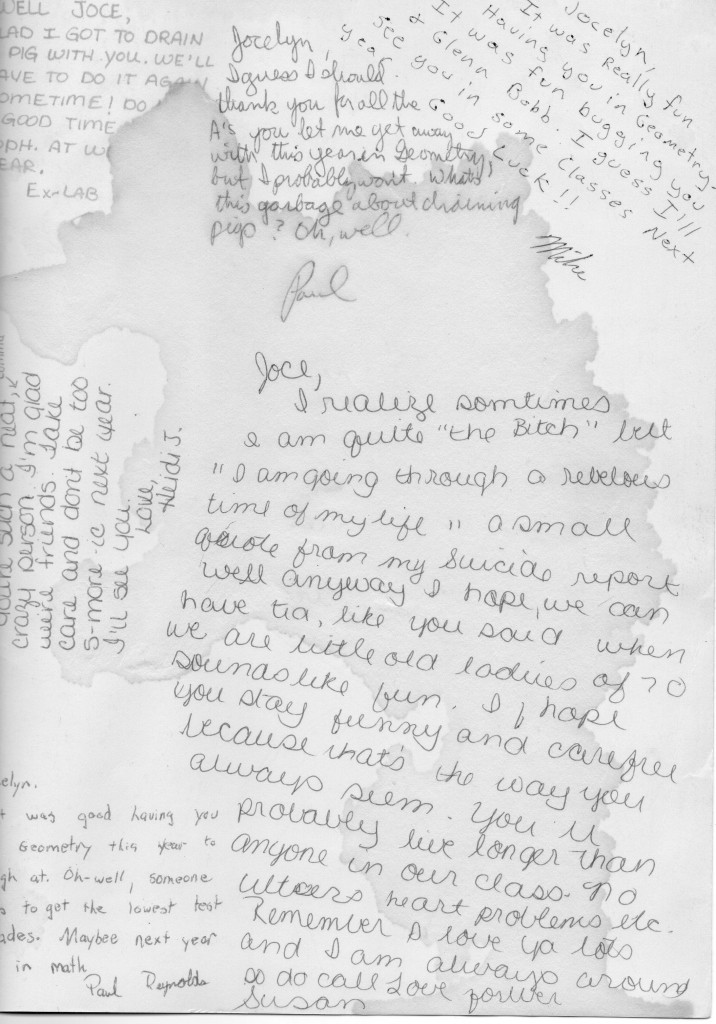 WELL JOCE,
LAD I GOT TO DRAIN
PIG WITH YOU. WE'LL
AVE TO DO IT AGAIN
OMETIME! DO
GOOD TIME
OPH. AT W
EAR.
EX-LAB
Jocelyn,
I guess I should
thank you for all the
A's you let me get away
with this year in Geometry,
but I probably wont. Whats
this garbage about draining
pigs? Oh, well.
Paul
Jocelyn,
It was Really fun
Having you in Geometry.
It was fun bugging you
& Glenn Bobb. I guess I'll
see you in some classes Next
yea Good Luck!!
Mike
You're such a neat, &
crazy person. I'm glad
we're friends. Take
care and dont be too
S-more-ic next year.
I'll see you.
Love,
Heidi J.
Joce,
I realize somtimes
I am quite "the Bitch" but
"I am going through a rebelous
time of my life" a small
quote from my Suicide report
well anyway I hope, we can
have tea, like you said when
we are little old ladies of 70
sounds like fun. I hope
you stay funny and carefree
because that's the way you
always seem. You'll
probably live longer than
anyone in our class. no
ulcers heart problems etc.
Remember I love ya lots
and I am always around
so do call Love forever
Susan
elyn.
t was good having you
Geometry this year to
gh at. Oh-well, someone
s to get the lowest test
ades. Maybee next year
in math
Paul Reynolds